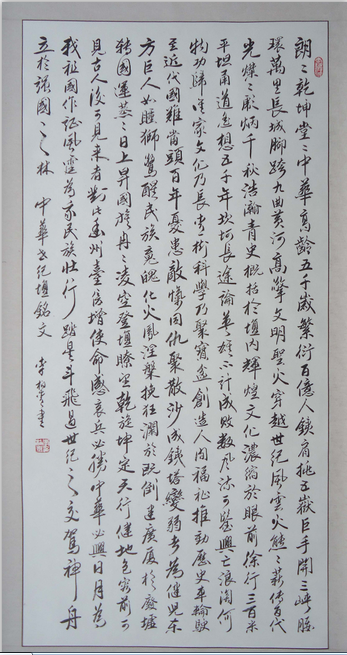 朗々乾坤堂々中華高齡五千歲繁衍百億人鐵肩挑五嶽巨手開三峽腰
環萬里長城腳跨九曲黃河高擎文明聖火穿越世紀風雲火熊々薪傳百代
光燦々彩炳千秋浩瀚青史概括於壇内輝煌文化濃縮於眼前徐行三百米
平坦甬道遙想五千年坎坷長途論英雄不計成敗數風流可鑒興亡浪淘何
物功歸誰家文化乃長青樹科學乃聚寶盆創造人間福祉推動歷史車輪駛
至近代國難當頭百年憂患敵愾同仇聚散沙成鐵塔變弱者為健兒東
方巨人如睡獅驚醒民族魂魄化火鳳涅槃挽狂瀾於既倒建廣廈於廢墟
轉國運蒸々日上昇國旗冉々凌空登壇瞭望乾旋坤定天行健地包容前可
見古人後可見來者對此幽州臺倍增使命感哀兵必勝中華必興日月為
我祖國作證風雷為我民族壯行踏星斗飛過世紀之交駕神舟
立於強國之林 中華世紀壇銘文 李 書